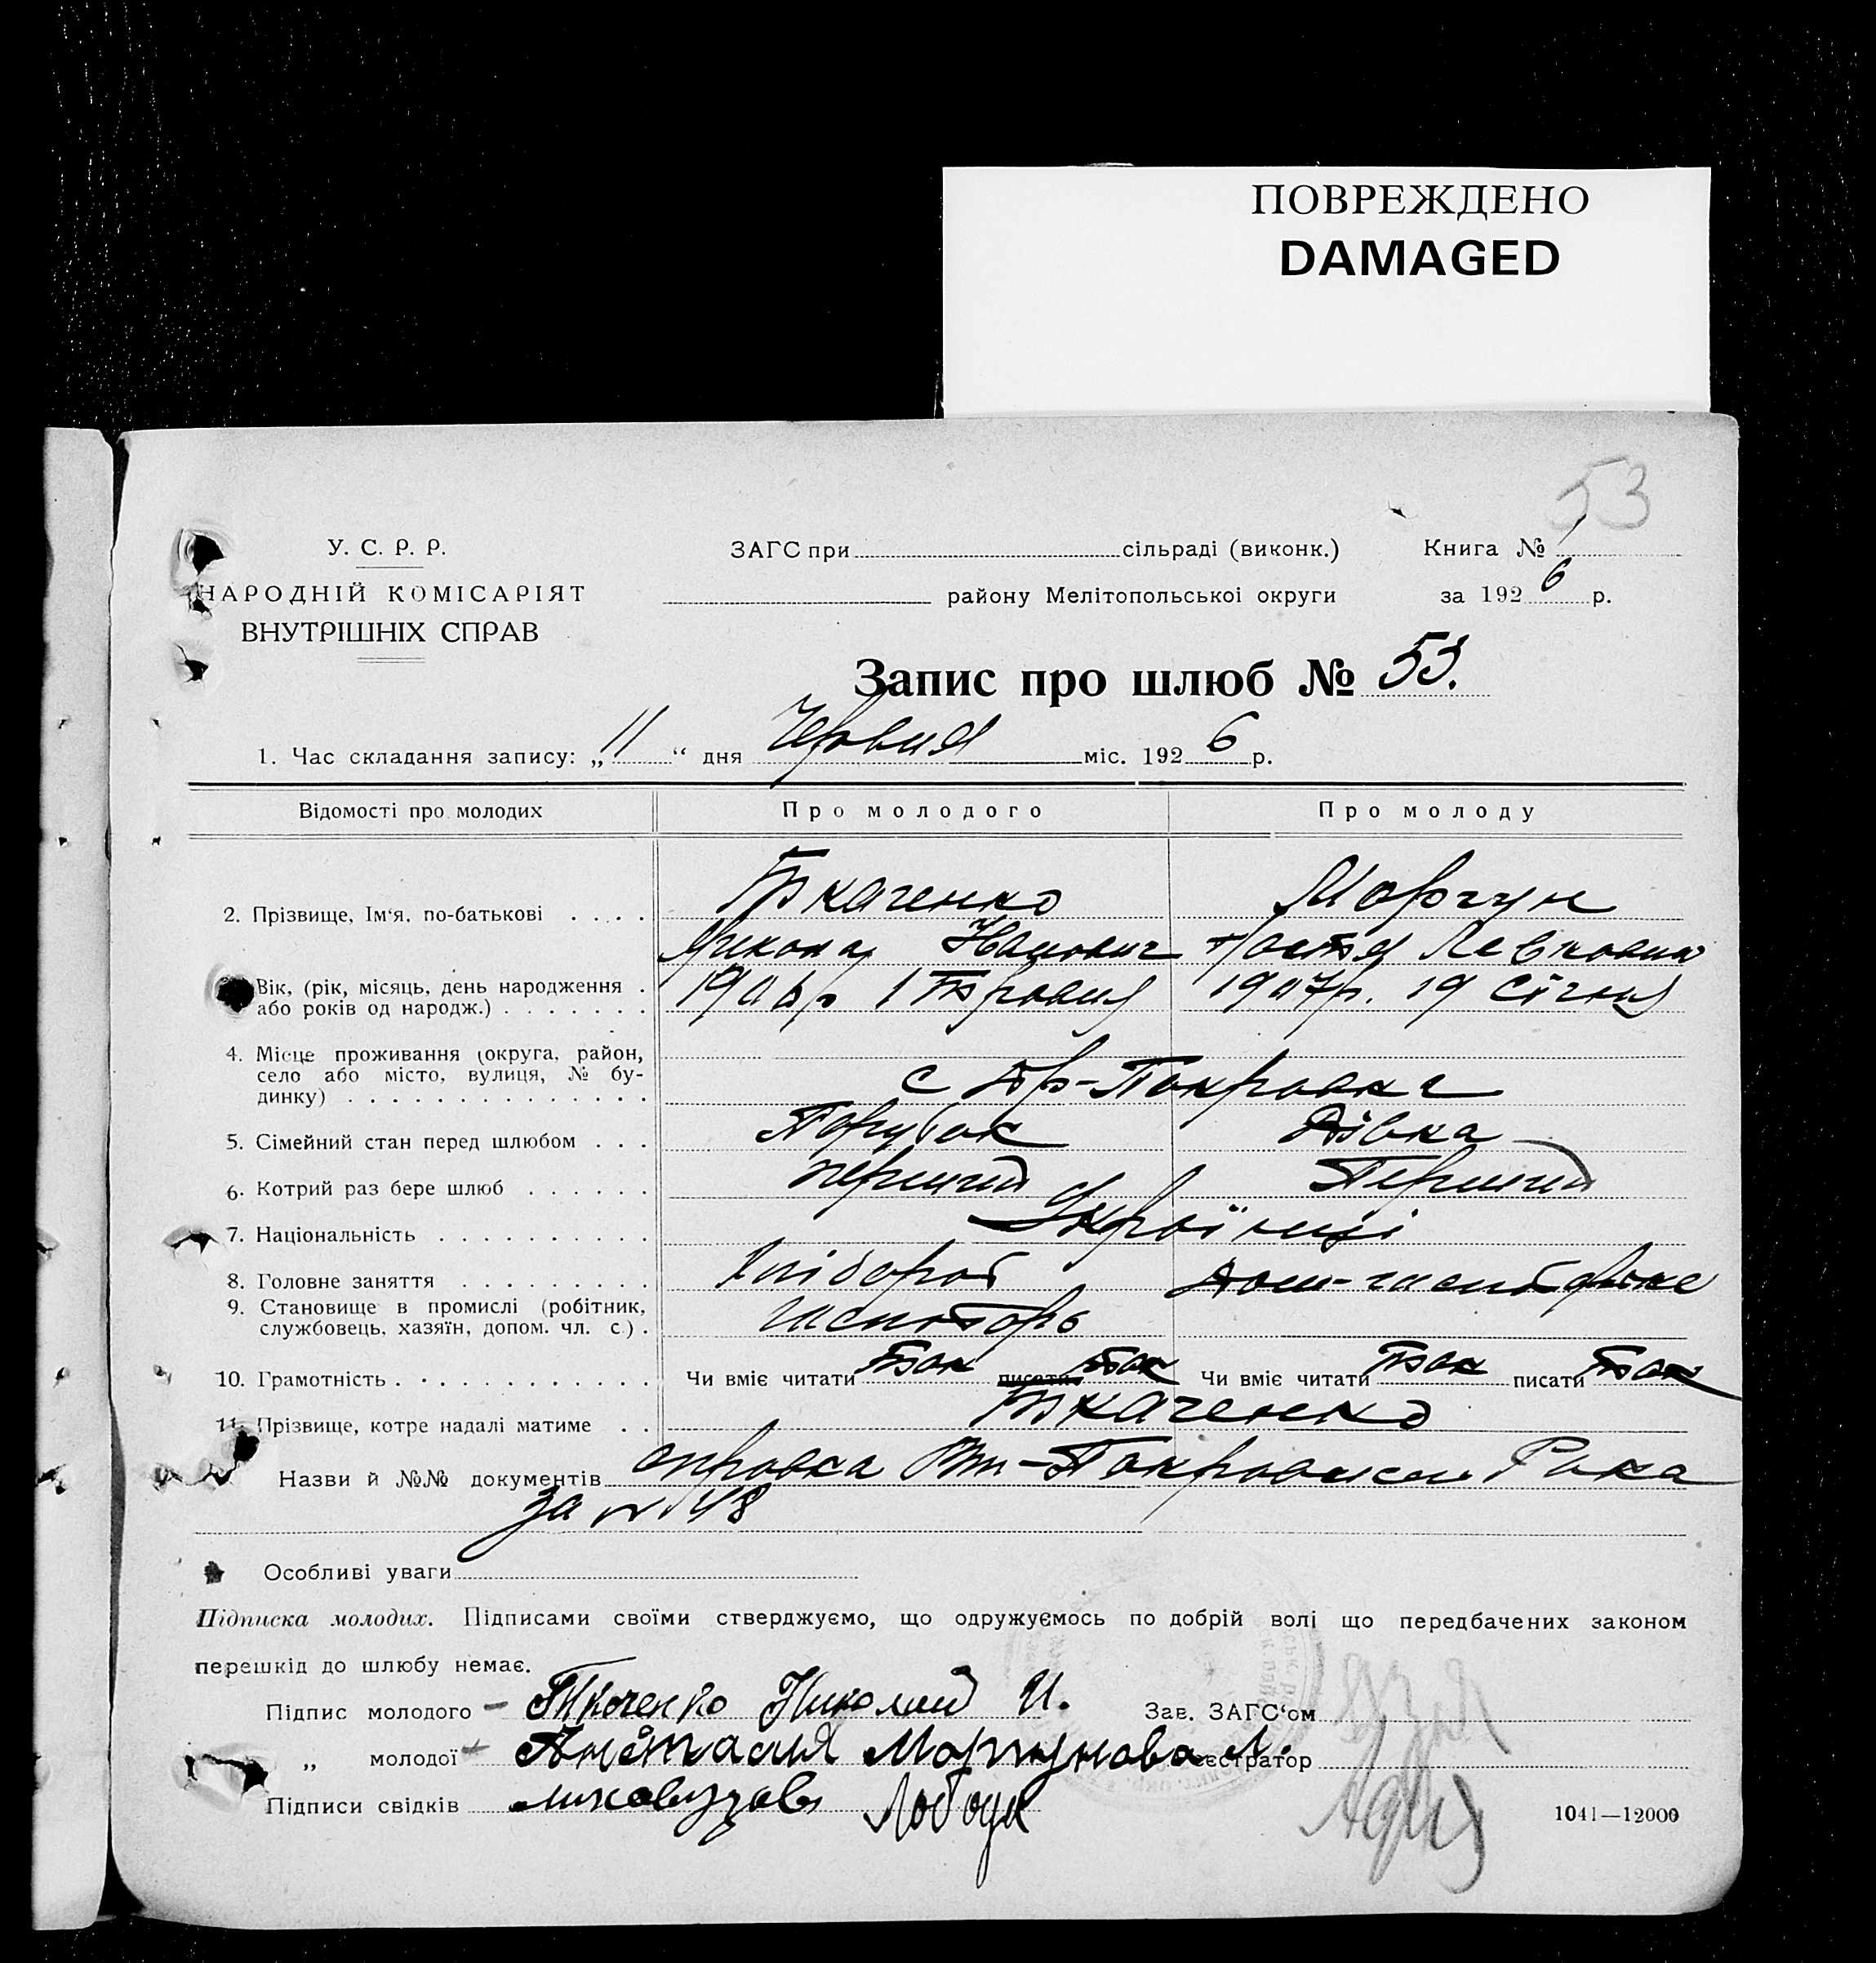 ПОВРЕЖДЕНО
DAMAGED
53
У. С. Р. Р.
НАРОДНІЙ КОМІСАРІЯТ
ВНУТРІШНІХ СПРАВ
ЗАГС при сільраді (виконк.)
району Мелітопольської округи
Книга № 1
за 1926 р.
Запис про шлюб № 53.
1. Час складання запису: „ 11 “ дня Червня міс. 1926 р.
Відомості про молодих Про молодого Про молоду
2. Прізвище, Ім‘я, по-батькові Ткаченко Моргун
Микола Іванович Настя Левковна
Вік, (рік, місяць, день народження 1906р 1 Травня 1907р. 19 Січня
або років од народж.)
4. Місце проживання (округа, район,
село або місто, вулиця, № бу-
динку) с -Покровка
5. Сімейний стан перед шлюбом Парубок Дівка
6. Котрий раз бере шлюб перший Перший
7. Національність Українці
8. Головне заняття Хлібороб Дом-
9. Становище в промислі (робітник,
службовець, хазяїн, допом. чл. с.)
10. Грамотність Чи вміє читати Так писати Так Чи вміє читати Так писати Так
11. Прізвище, котре надалі матиме Ткаченко
Назви й №№ документів справка Вт-Покровском Рика
за № 48
Особливі уваги
Підписка молодих. Підписами своїми стверджуємо, що одружуємось по добрій волі що передбачених законом
перешкід до шлюбу немає.
Підпис молодого - Ткаченко Николай И. Зав. ЗАГС‘ом
„ молодої Моргунова Л. Реєстратор
Підписи свідків Лобода
1041—12000